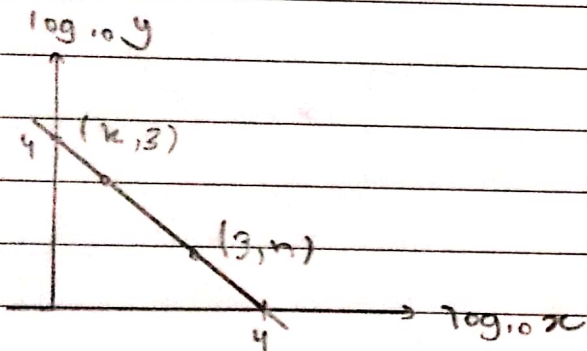 log₁₀ y
4
(k,3)
(3,n)
log₁₀ x
4